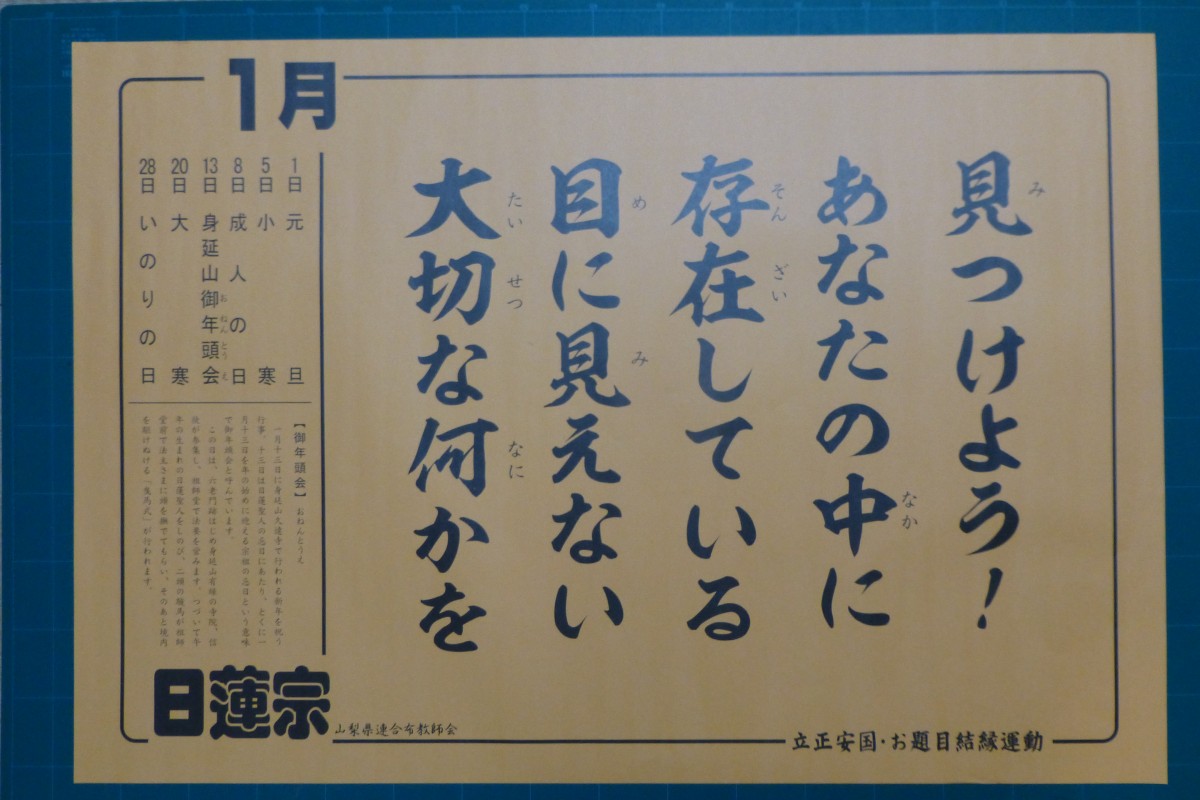 見つけよう！
あなたの中に
存在している
目に見えない
大切な何かを
1月
1日 元旦
5日 小寒
8日 成人の日
13日 身延山御年頭会
20日 大寒
28日 いのりの日
【御年頭会】おねんとうえ
一月十三日に身延山久遠寺で行われる新年を祝う
行事。十三日は日蓮聖人の忌日にあたり、とくに一
月十三日を年の始めに迎える宗祖の忌日という意味
で御年頭会と呼んでいます。
この日は、六老門跡はじめ身延山有縁の寺院、信
徒が参集し、祖師堂で法要を営みます。つづいて午
年の生まれの日蓮聖人をしのび、二頭の駿馬が祖師
堂前で法主さまに頭を撫でてもらい、そのあと境内
を駆けぬける「曳馬式」が行われます。
日蓮宗
山梨県連合布教師会
立正安国・お題目結縁運動